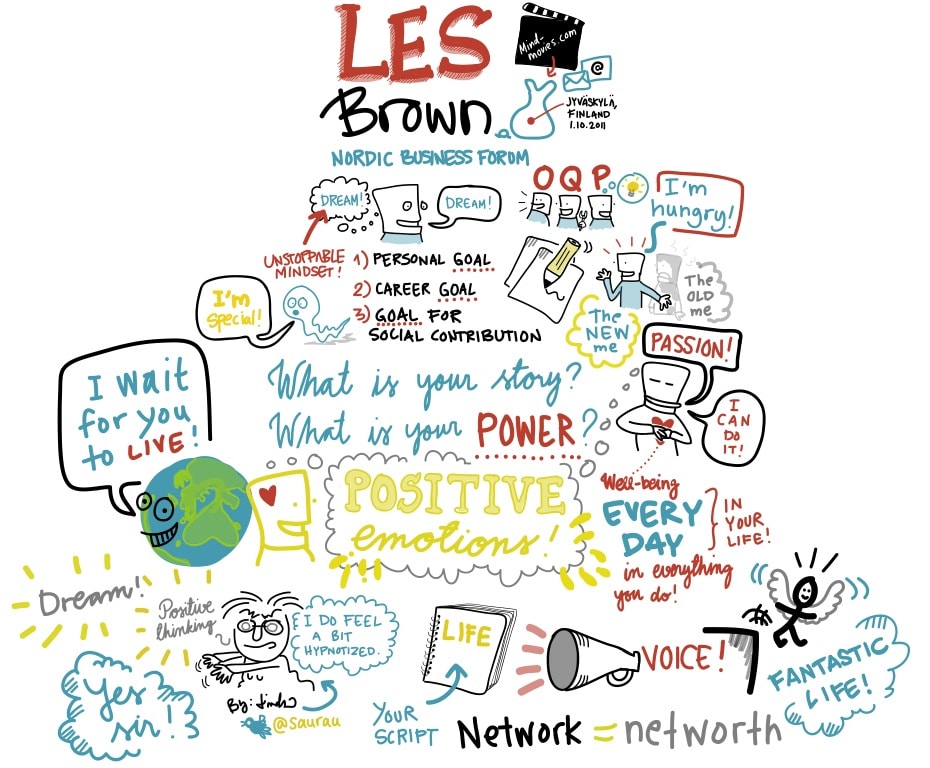 LES
Brown
Mind-
movies.com
@
JYVÄSKYLÄ,
FINLAND
1.10.2011
NORDIC BUSINESS FORUM
DREAM!
DREAM!
UNSTOPPABLE
MINDSET!
O Q P
I'm
hungry!
1) PERSONAL GOAL
2) CAREER GOAL
3) GOAL FOR
SOCIAL CONTRIBUTION
I'm
special!
The
OLD
me
The
NEW
me
PASSION!
I
CAN
DO
IT!
I wait
for you
to LIVE!
What is your story?
What is your POWER?
POSITIVE
emotions!
Well-being
EVERY
DAY
IN
YOUR
LIFE!
in everything
you do!
Dream!
Positive
thinking
I DO FEEL
A BIT
HYPNOTIZED.
Yes
sir!
By:
@saurau
LIFE
YOUR
SCRIPT
VOICE!
FANTASTIC
LIFE!
Network = networth